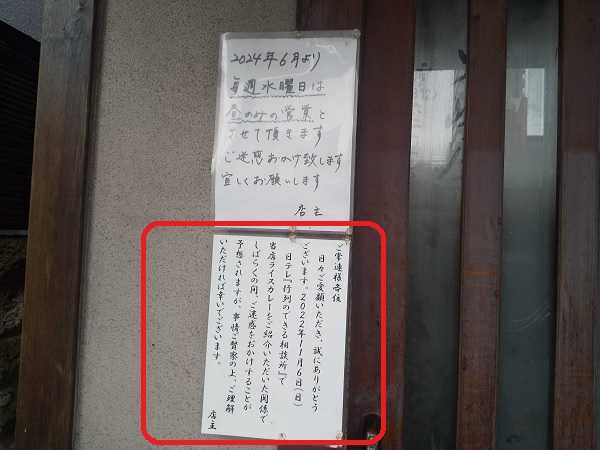 2024年6月より
毎週水曜日は
昼のみの営業と
させて頂きます
ご迷惑おかけ致します
宜しくお願いします
店主
ご常連様各位
日々ご愛顧いただき、誠にありがとう
ございます。2022年11月6日(日)
日テレ『行列のできる相談所』で
当店ライスカレーをご紹介いただいた関係で、
しばらくの間、ご迷惑をおかけすることが
予想されますが、事情ご賢察の上、ご理解
いただければ幸いでございます。
店主